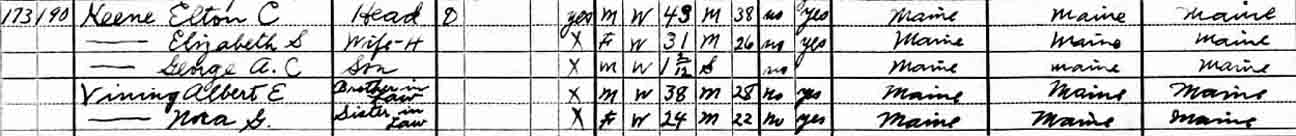 173 190 Keene Elton C Head O yes M W 43 M 38 no yes Maine Maine Maine
— Elizabeth S Wife-H X F W 31 M 26 no yes Maine Maine Maine
— George A. C Son X M W 1 5/12 S no Maine Maine Maine
Vining Albert E Brother in Law X M W 38 M 28 no yes Maine Maine Maine
— Nora G. Sister in Law X F W 24 M 22 no yes Maine Maine Maine